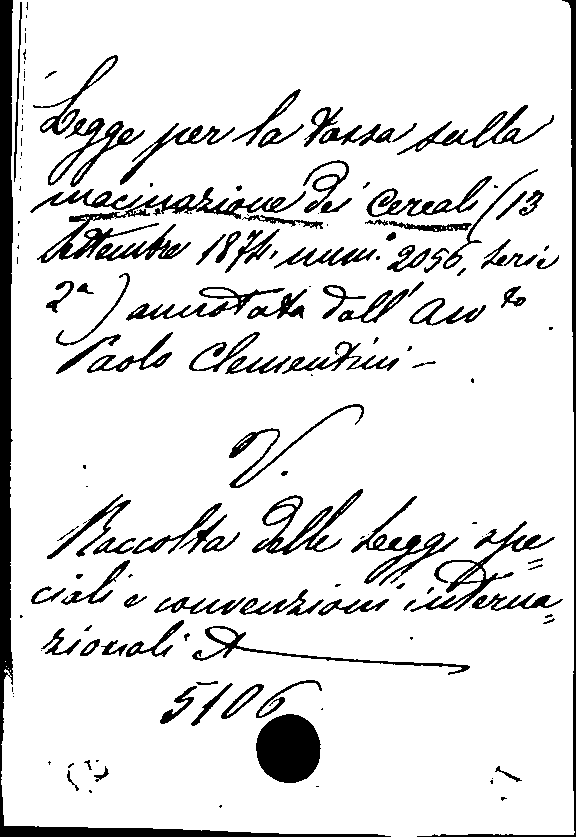 Legge per la tassa sulla
macinazione dei cereali (13
settembre 1874. num. 2056, serie
2ª) annotata dall' Avvto
Paolo Clementini –
V.
Raccolta delle Leggi spe=
ciali e convenzioni interna=
zionali A
5106